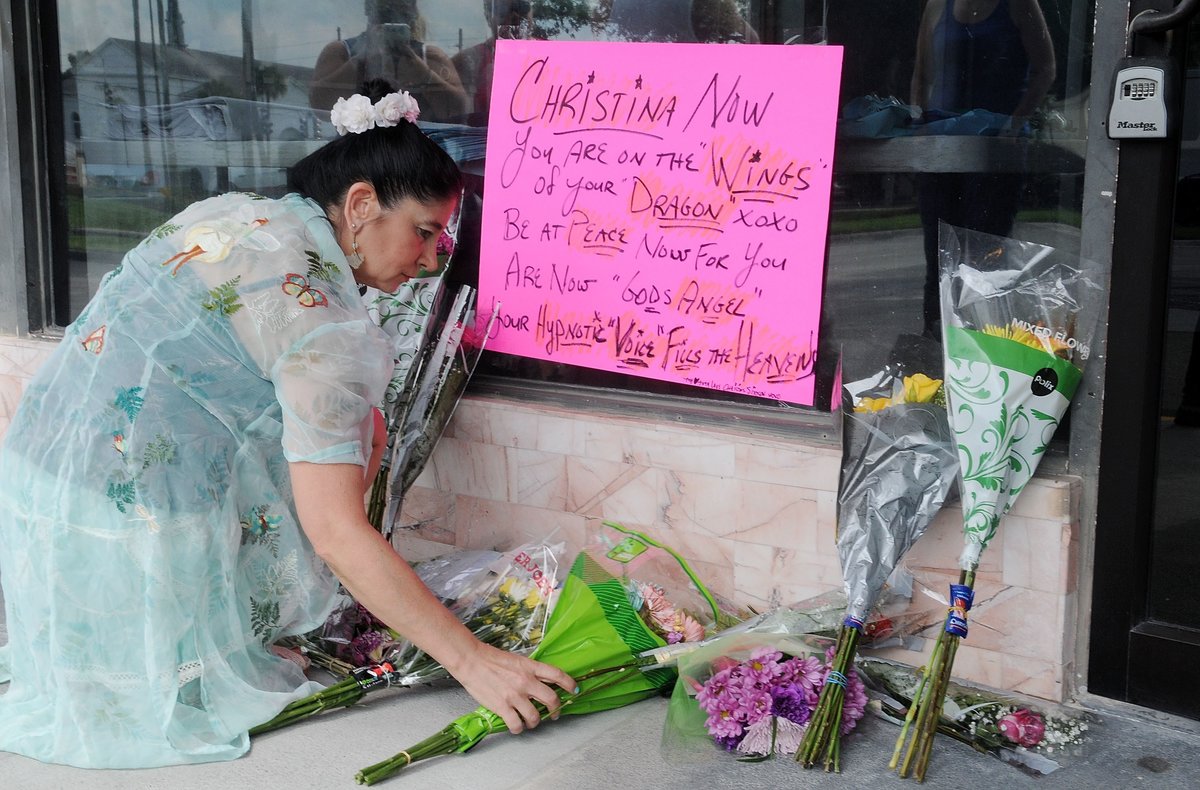 Christina Now
You are on the "Wings"
of your "Dragon" xoxo
Be at Peace Now for you
Are Now "Gods Angel"
Your Hypnotic "Voice" Fills the Heavens
Master Lock
MIXED FLOW
Publix